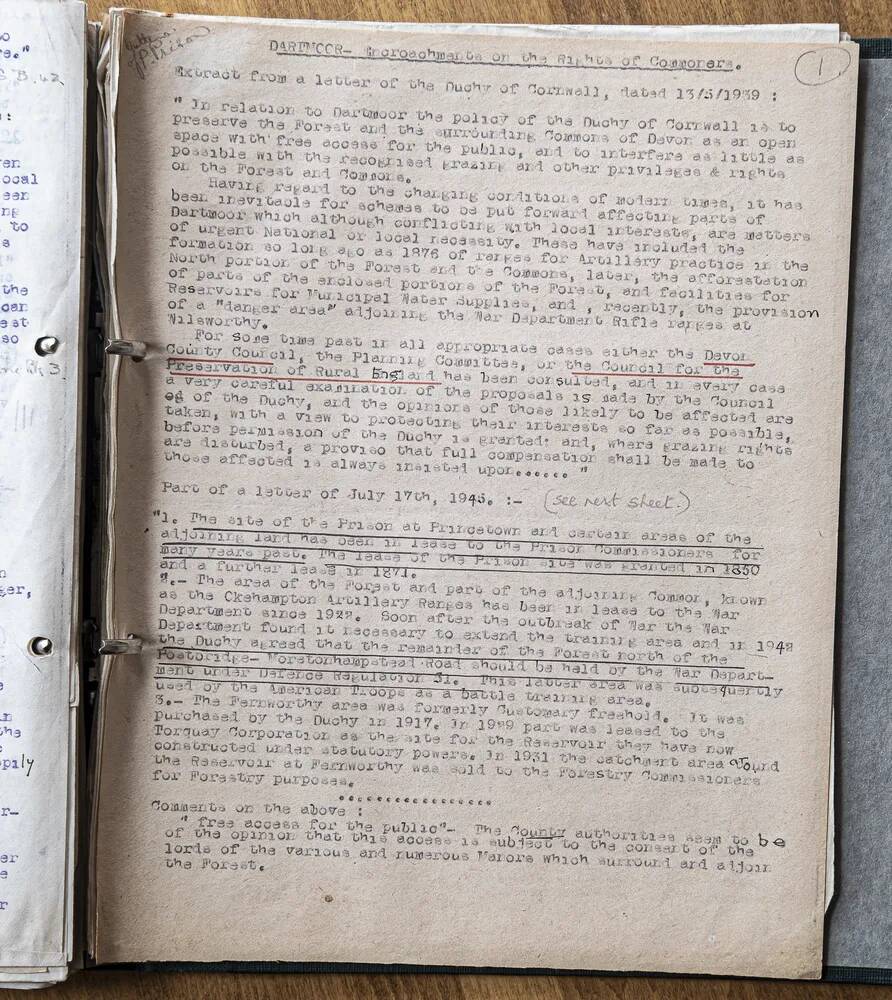 DARTMOOR- Encroachments on the Rights of Commoners.
1
Extract from a letter of the Duchy of Cornwall, dated 13/5/1939 :
" In relation to Dartmoor the policy of the Duchy of Cornwall is to
preserve the Forest and the surrounding Commons of Devon as an open
space with free access for the public, and to interfere as little as
possible with the recognised grazing and other privileges & rights
on the Forest and Commons.
Having regard to the changing conditions of modern times, it has
been inevitable for schemes to be put forward affecting parts of
Dartmoor which although conflicting with local interests, are matters
of urgent National or local necessity. These have included the
formation so long ago as 1876 of ranges for Artillery practice in the
North portion of the Forest and the Commons, later, the afforestation
of parts of the enclosed portions of the Forest, and facilities for
Reservoirs for Municipal Water Supplies, and , recently, the provision
of a "danger area" adjoining the War Department Rifle ranges at
Wilsworthy.
For some time past in all appropriate cases either the Devon
County Council, the Planning Committee, or the Council for the
Preservation of Rural England has been consulted, and in every case
a very careful examination of the proposals is made by the Council
of the Duchy, and the opinions of those likely to be affected are
taken, with a view to protecting their interests so far as possible,
before permission of the Duchy is granted; and, where grazing rights
are disturbed, a proviso that full compensation shall be made to
those affected is always insisted upon...... "
Part of a letter of July 17th, 1945. :- (see next sheet.)
"1. The site of the Prison at Princetown and certain areas of the
adjoining land has been in lease to the Prison Commissioners for
many years past. The lease of the Prison site was granted in 1850
and a further lease in 1871.
2.- The area of the Forest and part of the adjoining Common, known
as the Okehampton Artillery Ranges has been in lease to the War
Department since 1922. Soon after the outbreak of War the War
Department found it necessary to extend the training area and in 1942
the Duchy agreed that the remainder of the Forest north of the
Postbridge- Moretonhampstead Road should be held by the War Depart-
ment under Defence Regulation 51. This latter area was subsequently
used by the American Troops as a battle training area.
3.- The Fernworthy area was formerly Customary freehold. It was
purchased by the Duchy in 1917. In 1929 part was leased to the
Torquay Corporation as the site for the Reservoir they have now
constructed under statutory powers. In 1931 the catchment area round
the Reservoir at Fernworthy was sold to the Forestry Commissioners
for Forestry purposes.
..................
Comments on the above :
" free access for the public"- The County authorities seem to be
of the opinion that this access is subject to the consent of the
lords of the various and numerous Manors which surround and adjoin
the Forest.